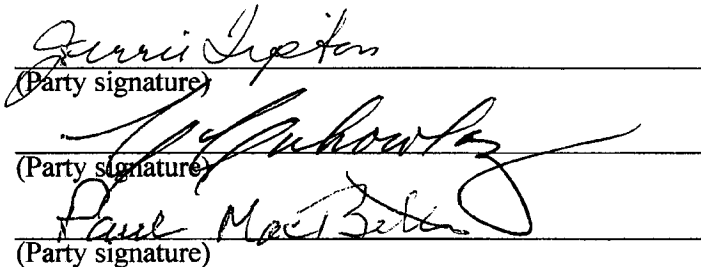 Jerrie Tipton
(Party signature)
(Party signature)
Paul MacBeth
(Party signature)